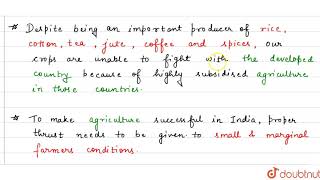 * Despite being an important producer of rice,
cotton, tea, jute, coffee and spices, our
crops are unable to fight with the developed
country because of highly subsidised agriculture
in those countries.
* To make agriculture successful in India, proper
thrust needs to be given to small & marginal
farmers conditions.
doubtnut